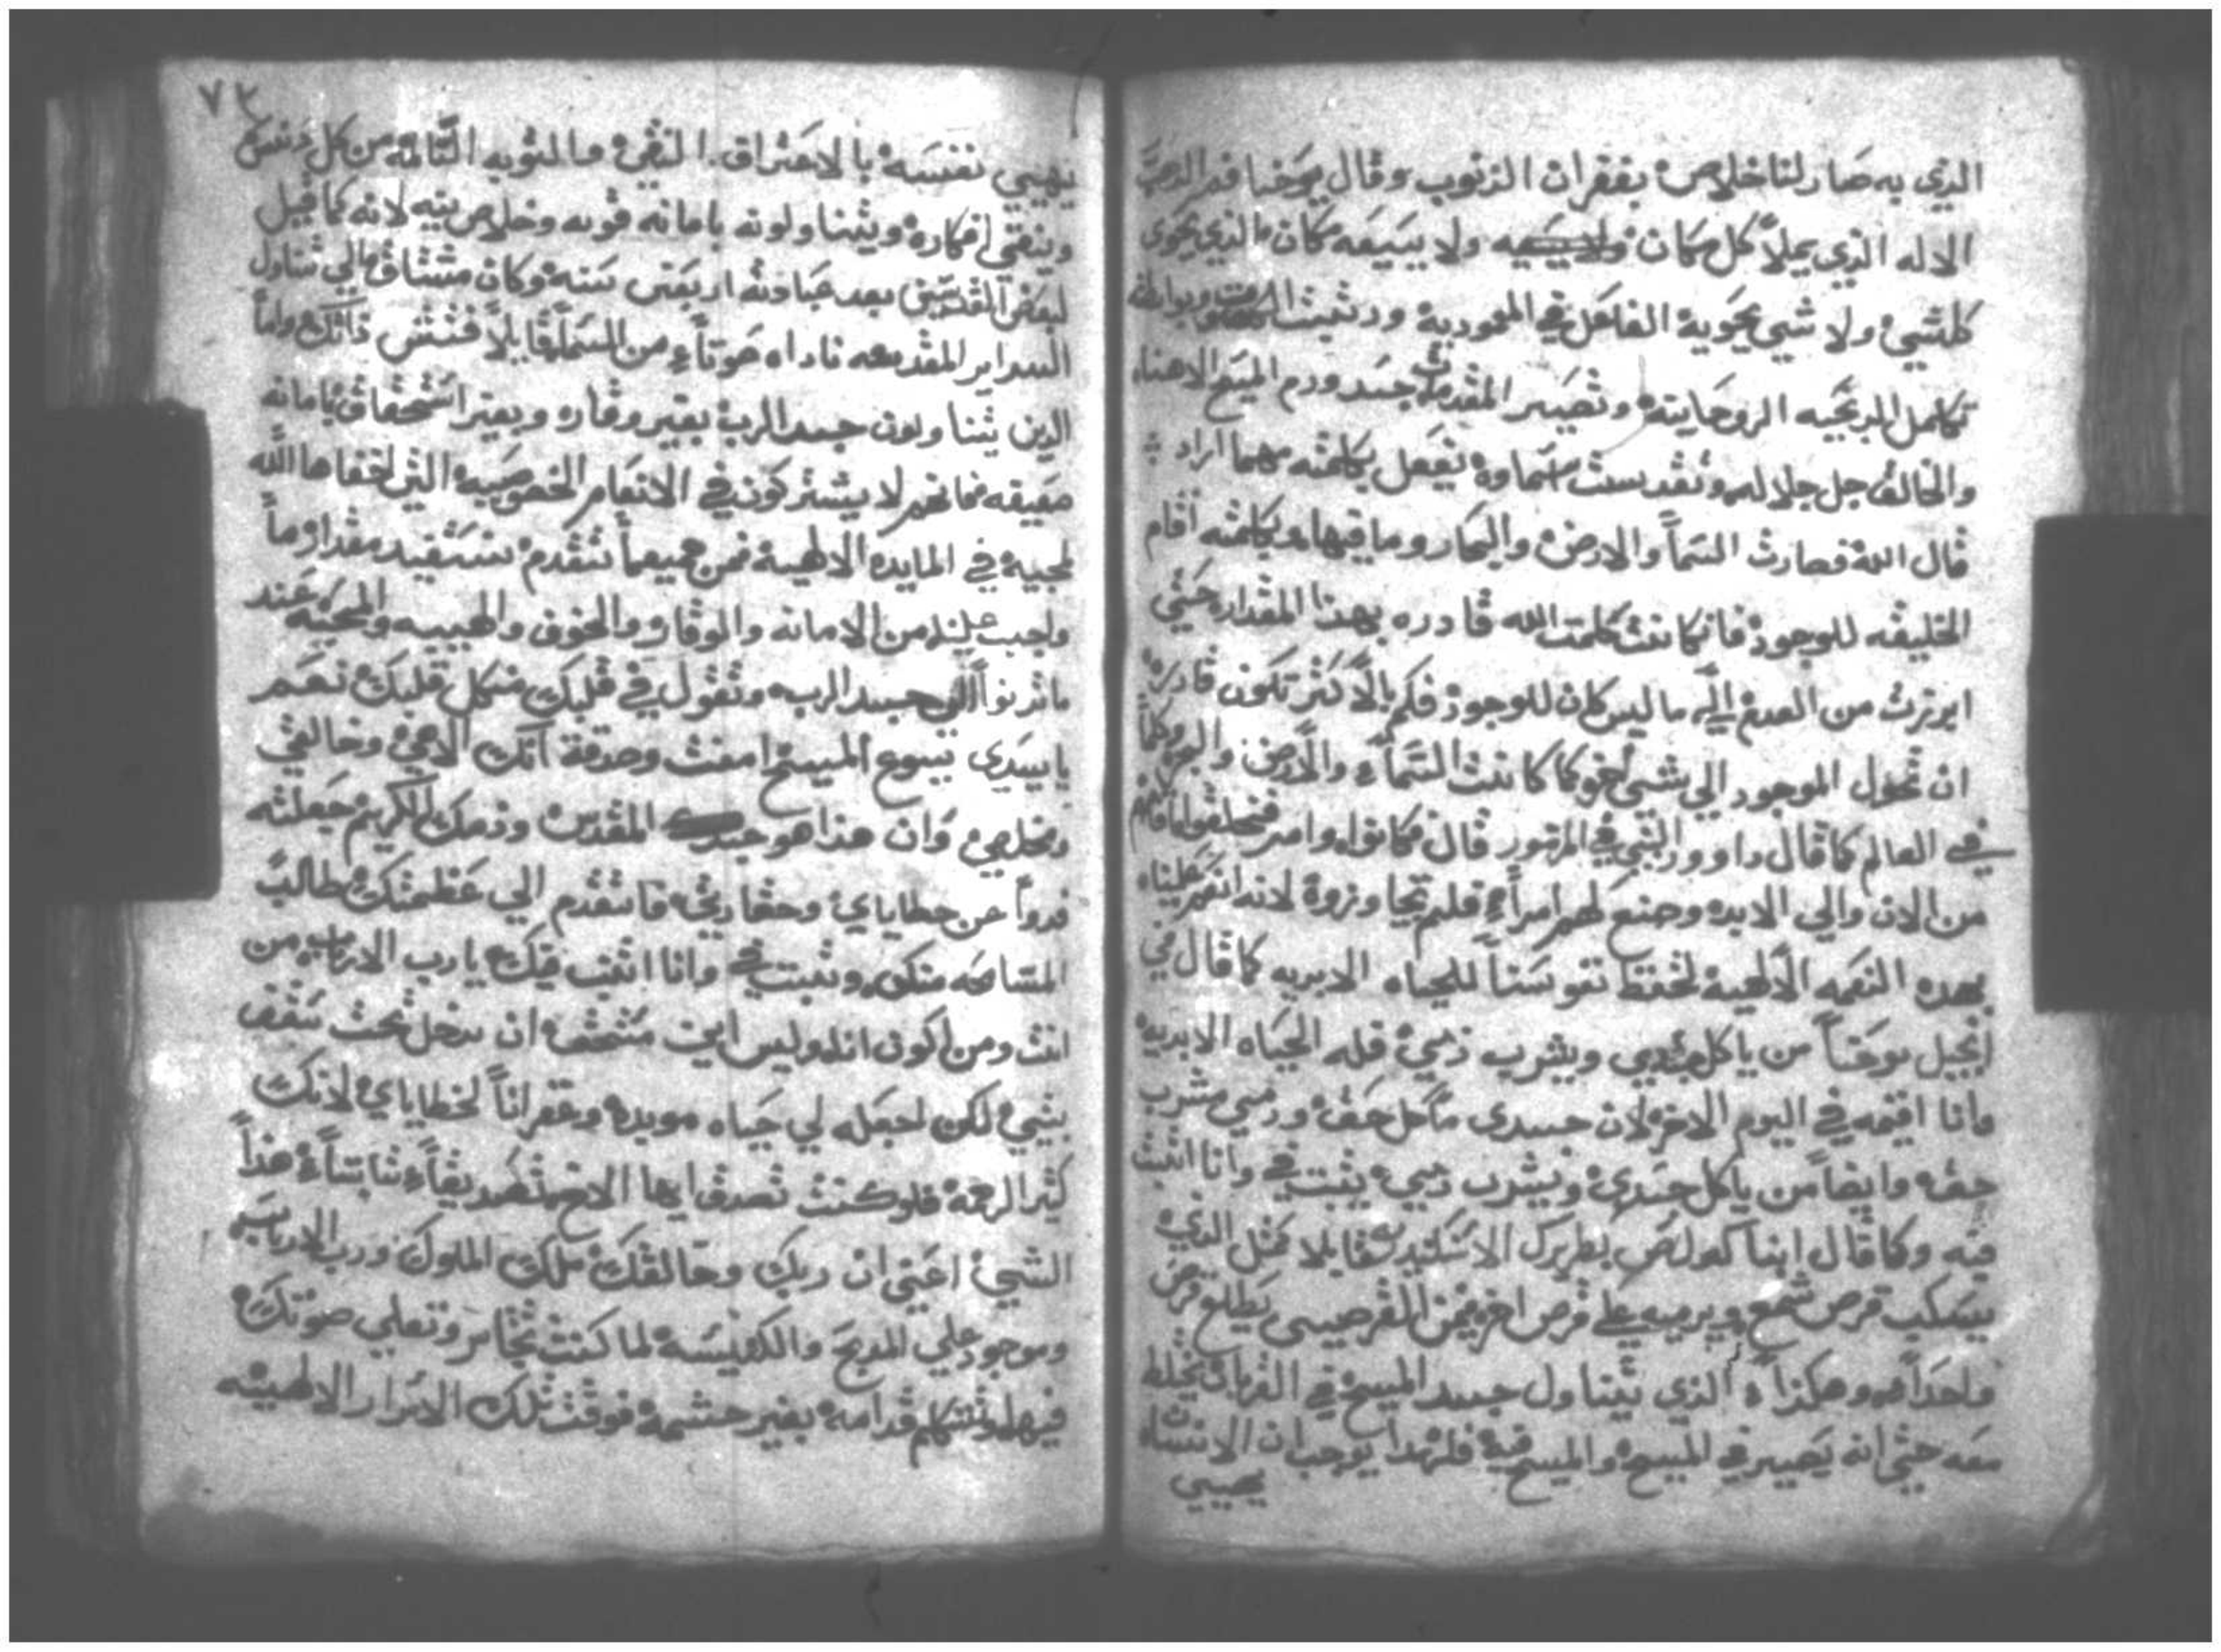 الذي به صار لنا خلاص بغفران الذنوب وقال يوحنا فم الذهب
الاله الذي يملأ كل مكان ولا يسعه مكان الذي يحوى
كلشي ولا شي يحويه الفاعل في المعمودية
تكامل الروحانية وتصير المقدمة جسد ودم المسيح الاهنا
والخالق جل جلاله وتقدست اسماوه يفعل بكلمته مهما اراد
قال الله فصارت السمآ والارض والبحار وما فيها وبكلمته اقام
الخليقه للوجود فان كانت كلمت الله قادره بهذا المقدار حتي
ابرزت من العدم الي ما ليس كان للوجود فكم بالأكثر تكون قادرة
ان تحول الموجود الي شي اخر كما كانت السمآء والارض والبحر وكلما
في العالم كما قال داوود النبي في المزمور قال فكانوا وامر فخلقوا اقام
من الان والي الابد وصنع لهم امرأ فلم تجاوزوه لانه انعم علينا
بهده النعمه الالهية لحفظ نفوسنا للحياه الابديه كما قال في
انجيل يوحنآ من ياكل جسدي ويشرب دمي فله الحياه الابديه
وانا اقيمه في اليوم الاخر لان جسدي مأكل حق ودمي مشرب
حق وايضاً من ياكل جسدي ويشرب دمي يثبت في وانا اثبت
فيه وكما قال ابنا كيرلص بطريرك الاسكندريه قايلا مثل الذي
يسكب قرص شمع ويرميه علي قرص اخر فمن القرصين يطلع قرص
واحداً وهكذا الذي يتناول جسد المسيح في القربان يختلط
معه حتي انه يصير في المسيح والمسيح فيه فلهدا يوجب ان الانسان
يهيي
٧٣
يهيي نفسه بالاعتراف النقي والتوبه التامه من كل دنس
وينقي افكاره ويتناولونه بامانه قويه وخلاص نيه لانه كما قيل
لبعض القديسين بعد عبادته اربعين سنه وكان مشتاق الي تناول
السراير المقدسه ناداه صوتاً من السما قايلاً فتش ذاتك واما
الدين يتناولون جسد الرب بغير وقار وبغير استحقاق بامانه
ضعيفه فانهم لا يشتركون في الانعام الخصوصيه التي اخفاها الله
لمحبيه في المايده الالهية فمن جميع ما تقدم نستفيد مقدار ما
واجب علينا من الامانه والوقار والخوف والهيبه والمحبه عند
ما تدنوا الي جسد الرب وتقول في قلبك من كل قلبك نعم
يا سيدي يسوع المسيح امنت وصدقة انك الاهي وخالقي
ومخلصي وان هذا هو جسدك المقدس ودمك الكريم جعلته
فدواً عن خطاياي وحقارتي فاتقدم الي عظمتك طالب
المسامحه منك وتثبت في وانا اثبت فيك يا رب الارباب من
انت ومن اكون انا وليس انى مستحق ان تدخل تحت سقف
بيتي لكن اجعله لي حياه موبده وغفراناً لخطاياي لانك
كثير الرحمة فلو كنت تصدق ايها الاخ تصديقاً ثابتاً هذا
الشي اعني ان ربك وخالقك ملك الملوك ورب الارباب
وموجود علي المدبح والكنيسه لما كنت تجاسر وتعلي صوتك
فيها وتتكلم قدامه بغير حشمة فوقت تلك الاسرار الالهيه